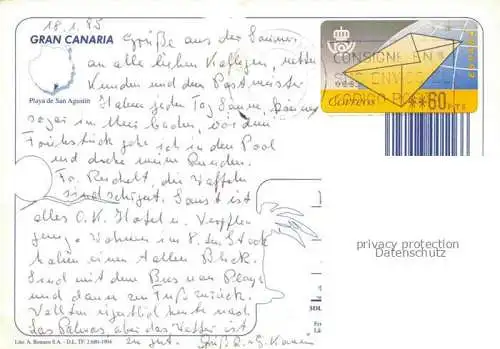 18.1.95
GRAN CANARIA
Playa de San Agustin
Grüße aus der Sonne
an alle lieben Kollegen, netten
Kunden und den Postmeister
Haben jeden Tag Sonne,
sogar im Meer baden, vor dem
Frühstück gehe ich in den Pool
und drehe meine Runden.
die Waffeln
sind Sonst ist
alles O.K. Hotel u. Verpfle
gung. Wohnen im 8. Stock
haben einen tollen Blick.
Sind mit dem Bus nach Playa
und dann zu Fuß zurück.
Wollten eigentlich heute nach
Las Palmas, aber das Wetter ist
zu gut.
CONSIGNE EN
SUS ENVIOS
CODIGO POSTAL
Correos
**60 PTS
privacy protection
Datenschutz
Lito. A. Romero S.A. - D.L. TF. 2.681-1994